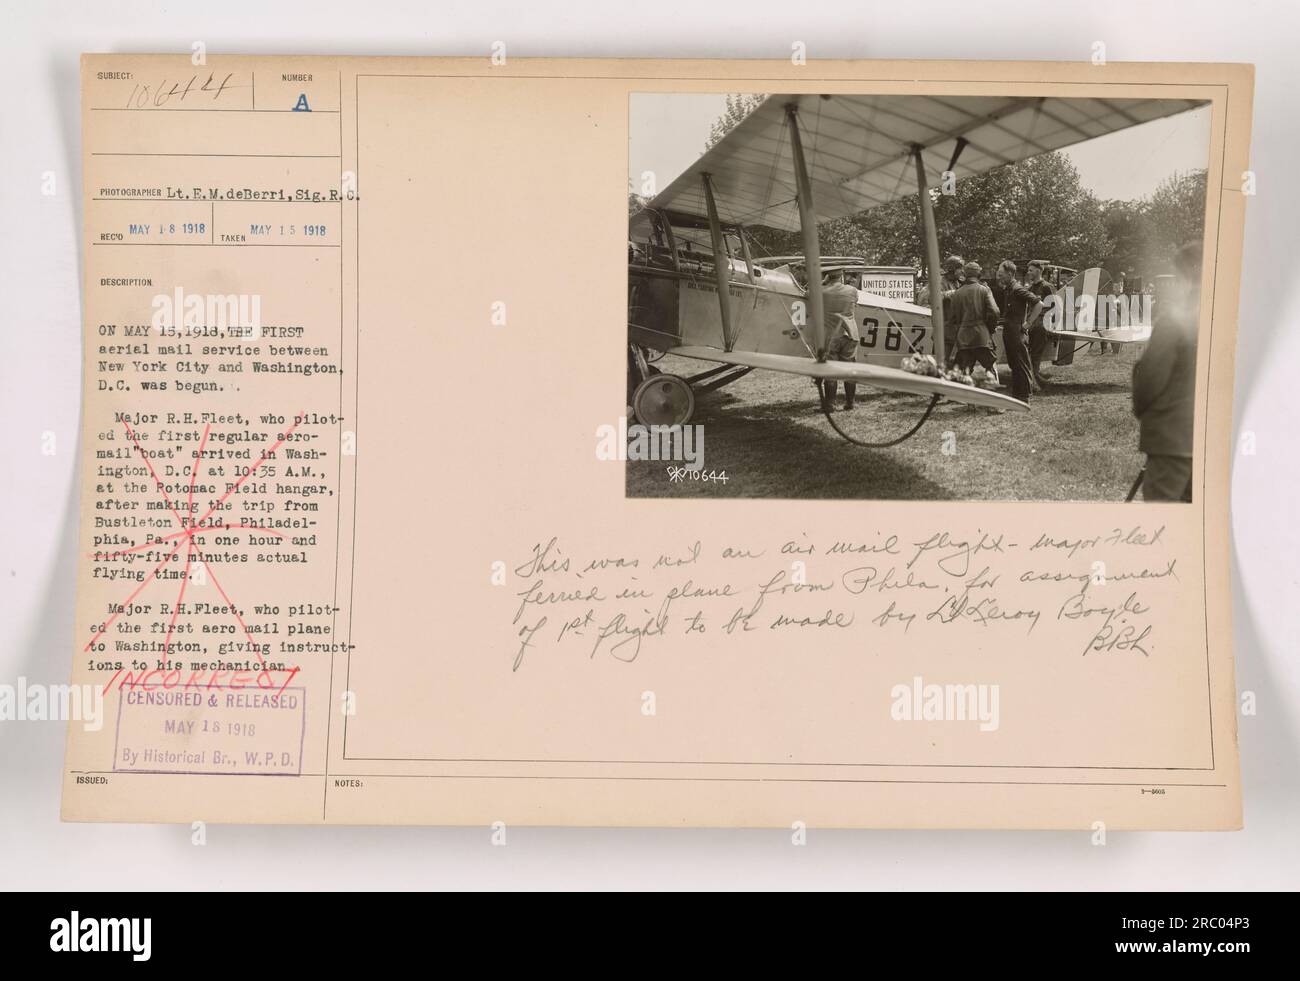 SUBJECT:
10644
NUMBER
A
PHOTOGRAPHER Lt.E.M.deBerri,Sig.R.C.
REC'D MAY 18 1918
TAKEN MAY 15 1918
DESCRIPTION
ON MAY 15,1918,THE FIRST
aerial mail service between
New York City and Washington,
D.C. was begun.
Major R.H.Fleet, who pilot-
ed the first regular aero-
mail"boat" arrived in Wash-
ington, D.C. at 10:35 A.M.,
at the Potomac Field hangar,
after making the trip from
Bustleton Field, Philadel-
phia, Pa., in one hour and
fifty-five minutes actual
flying time.
Major R.H.Fleet, who pilot-
ed the first aero mail plane
to Washington, giving instruct-
ions to his mechanician.
INCORRECT
CENSORED & RELEASED
MAY 18 1918
By Historical Br., W.P.D.
ISSUED:
NOTES:
UNITED STATES
MAIL SERVICE
382
10644
This was not an air mail flight - major Fleet
ferried in plane from Phila. for assignment
of 1st flight to be made by Lt Leroy Boyle
BBL.
3-5605
alamy
Image ID: 2RC04P3
www.alamy.com